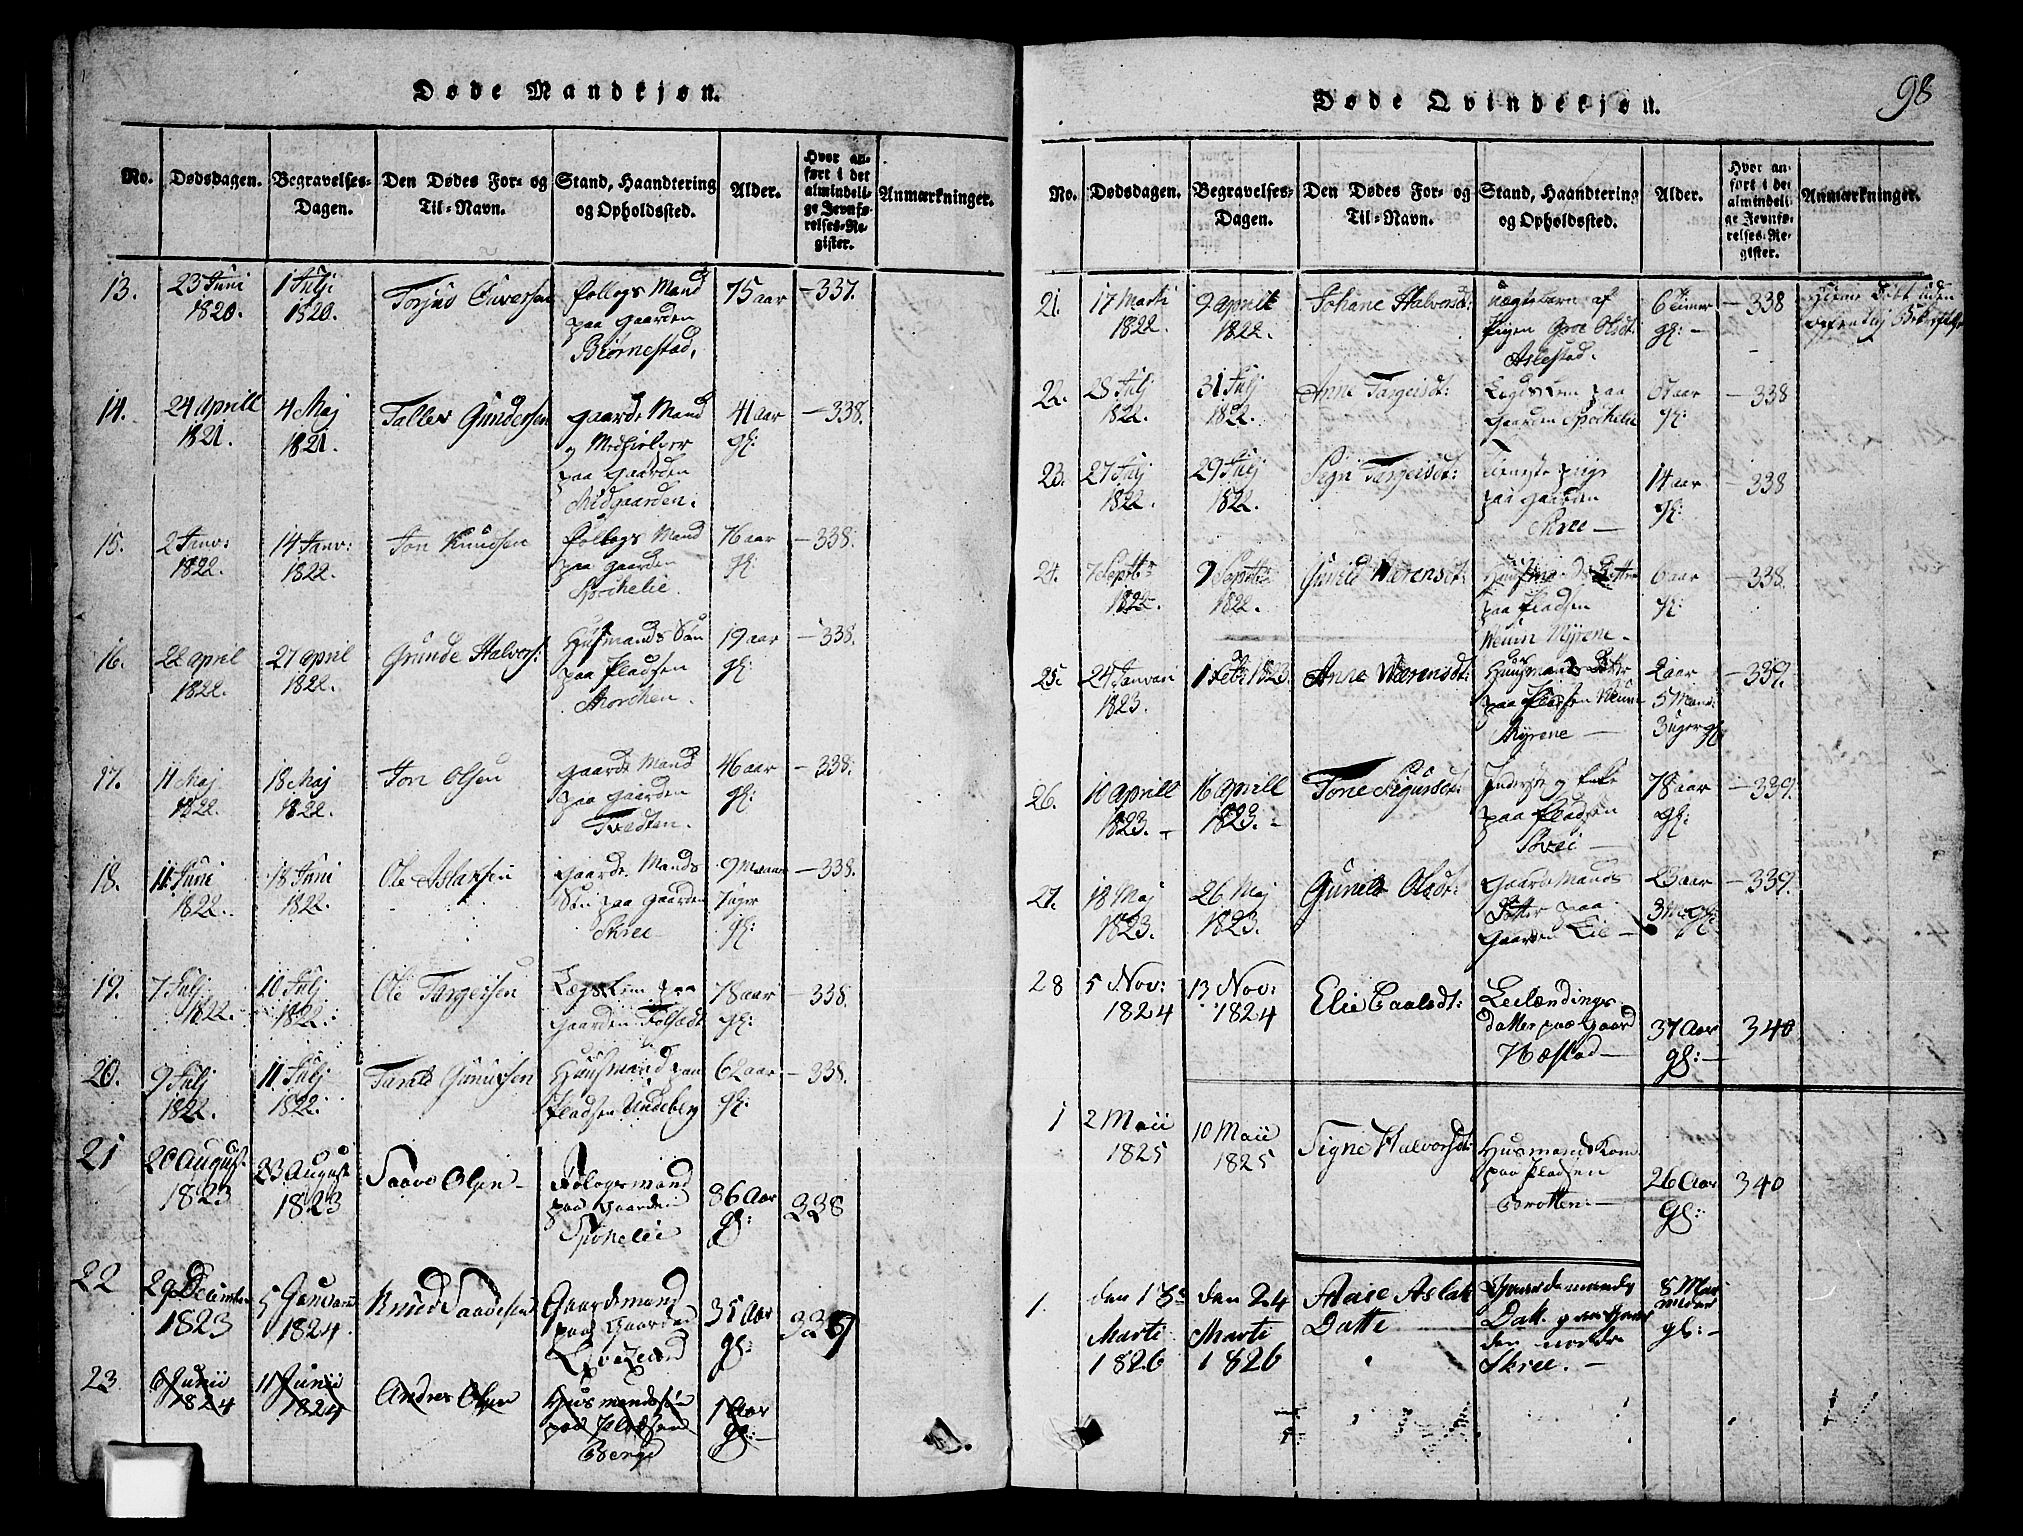 Døde Mandkjøn.
No. Dødsdagen. Begravelses-Dagen. Den Dødes For- og Til-Navn. Stand, Haandtering og Opholdssted. Alder. Hvor anført i det almindelige Jevnførelses-Register. Anmærkninger.
13. 23 Juni 1820. 1 Julj 1820. Torjus paa gaarden Biørnestad. 75 aar 337.
14. 24 Aprill 1821. 4 Maj 1821. Tallev Gundersen gaarde Mand og paa gaarden Midgaarden. 41 aar gl: 338.
15. 2 Janv: 1822. 14 Janv: 1822. Jon Knudsen Mand paa gaarden Spockelie. 76 aar gl: 338.
16. 22 april 1822. 27 april 1822. Grunde Halvors: Huusmands Søn paa Pladsen 19 aar gl: 338.
17. 11 Maj 1822. 18 Maj 1822. Jon Olsen gaarde Mand paa gaarden Tvedten. 46 aar gl: 338.
18. 11 Juni 1822. 18 Juni 1822. Ole Aslaksen gaarde Mands Søn paa gaarden Skree 9 7 uger gl: 338.
19. 7 Julj 1822. 10 Julj 1822. Ole Targeisen Lægs Lem paa gaarden 78 aar gl: 338.
20. 9 Julj 1822. 11 Julj 1822. Gunusen Huusmand paa Pladsen Undeberg 62 aar gl: 338.
21 20 August 1823 23 August 1823 Saave Olsen FøLogsmand paa Gaarden Spokelie 86 Aar gl: 338
22 29 December 1823 5 Januarii 1824 Knud Saavesen Gaardmand paa Gaarden 35 Aar gl: 339
23 6 Junii 1824 11 Junii 1824 Andres Olsen Husmandssøn paa Pladsen Berge 1 Aar gl:
98
Døde Qvindekjøn.
No. Dødsdagen. Begravelses-Dagen. Den Dødes For- og Til-Navn. Stand, Haandtering og Opholdssted. Alder. Hvor anført i det almindelige Jevnførelses-Register. Anmærkninger.
21. 17 Marti 1822. 9 april 1822. Johane Halvorsdt: af Pigen Groe Olsdt: Aslestad. 6 Timer gl: 338 Hjeme Døbt uden
22. 28 Julj 1822. 31 Julj 1822. Anne Targeisdt: Legds Lem paa gaarden Spockelie aar gl: 338
23. 27 Julj 1822. 29 Julj 1822. Sign Targeisdt: Tieneste pige paa gaarden Skree 14 aar gl: 338
24. 7 Septbr 1822. 9 Septbr 1822. Gunild Værensdt: Datter paa Pladsen Myrene 6 aar gl: 338.
25. 24 Januari 1823. 1 Feb: 1823. Anne Værensdt: Huusmands Datter paa Pladsen Myrene 2 aar 5 Maan: 3 uger gl: 339.
26. 10 Aprill 1823. 16 Aprill 1823. Tone Sigursdt: paa Pladsen Skrei 78 aar gl: 339.
27. 18 Maj 1823. 26 Maj 1823. Gunild Olsdt: Gaarde Mands Datter paa Gaarden Lie 23 aar 3 M: gl: 339.
28 5 Nov: 1824 13 Nov: 1824 Elie Paalsdt: Leilændings datter paa Gaard Hæstad 37 Aar gl: 340
1 2 Maii 1825 10 Maii 1825 Signe Halvorsdt: Husmand Kone paa Pladsen Brotten 26 Aar gl: 340
1. den 18 Marti 1826 den 24 Marti 1826 Aslak Datte Gaardemands Datt. paa Gaarden nordre Skree. 8 Maaneder gl: